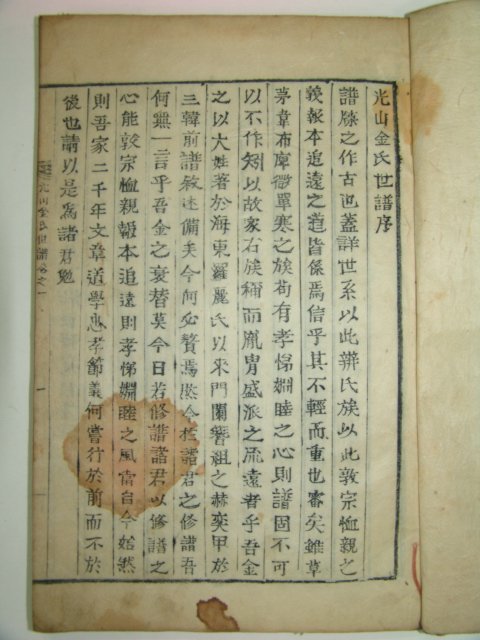 光山金氏世譜序
譜牒之作古也蓋詳世系以此辨氏族以此敦宗恤親之
義報本追遠之道皆係焉信乎其不輕而重也審矣雖草
茅韋布卑微單寒之族苟有孝悌婣睦之心則譜固不可
以不作矧以故家右族稱而胤胄盛派之流遠者乎吾金
之以大姓著於海東羅麗氏以來門闌簪組之赫奕甲於
三韓前譜敘述備矣今何必贅焉然今於諸君之修譜吾
何無一言乎吾金之衰替莫今日若修譜諸君以修譜之
心能敦宗恤親報本追遠則孝悌婣睦之風當自今始然
則吾家二千年文章道學忠孝節義何嘗行於前而不於
後也請以是爲諸君勉
光山金氏世譜卷之一